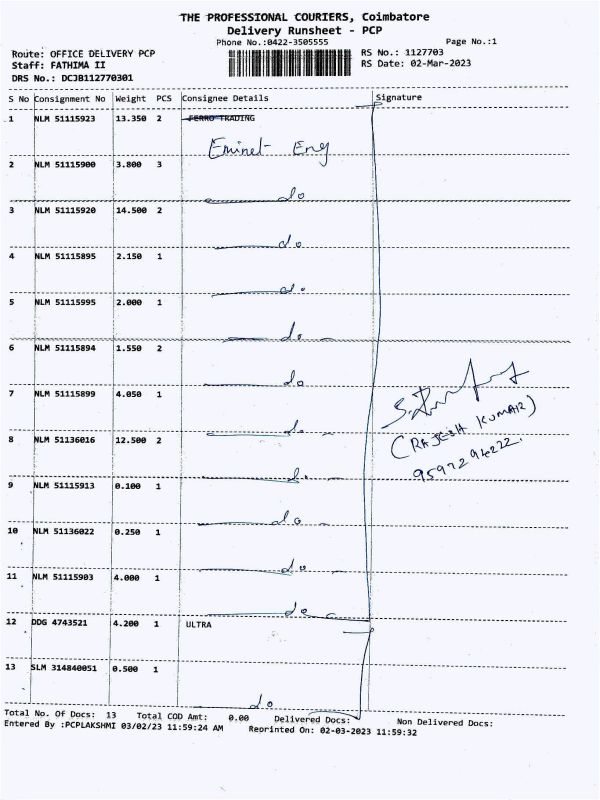 THE PROFESSIONAL COURIERS, Coimbatore
Delivery Runsheet - PCP
Phone No.:0422-3505555
Page No.:1
Route: OFFICE DELIVERY PCP
RS No.: 1127703
Staff: FATHIMA II
RS Date: 02-Mar-2023
DRS No.: DCJB112770301
S No Consignment No Weight PCS Consignee Details Signature
1 NLM 51115923 13.350 2 FERRO TRADING
Eminet- Eng
2 NLM 51115900 3.800 3
do
3 NLM 51115920 14.500 2
do
4 NLM 51115895 2.150 1
do.
5 NLM 51115995 2.000 1
do.
6 NLM 51115894 1.550 2
do
7 NLM 51115899 4.050 1
do.
(RAJESH KUMAR)
8 NLM 51136016 12.500 2
do.
9 NLM 51115913 0.100 1
do
10 NLM 51136022 0.250 1
do
11 NLM 51115903 4.000 1
do
12 DDG 4743521 4.200 1 ULTRA
13 SLM 314840051 0.500 1
do
Total No. Of Docs: 13 Total COD Amt: 0.00 Delivered Docs: Non Delivered Docs:
Entered By :PCPLAKSHMI 03/02/23 11:59:24 AM Reprinted On: 02-03-2023 11:59:32